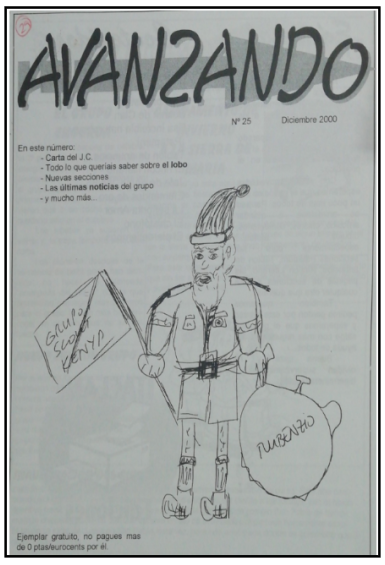 25
AVANZANDO
Nº 25 Diciembre 2000
En este número:
- Carta del J.C.
- Todo lo que queríais saber sobre el lobo
- Nuevas secciones
- Las últimas noticias del grupo
- y mucho más...
GRUPO
SCOUT
KENYA
RUBENZIO
Ejemplar gratuito, no pagues mas
de 0 ptas/eurocents por él.